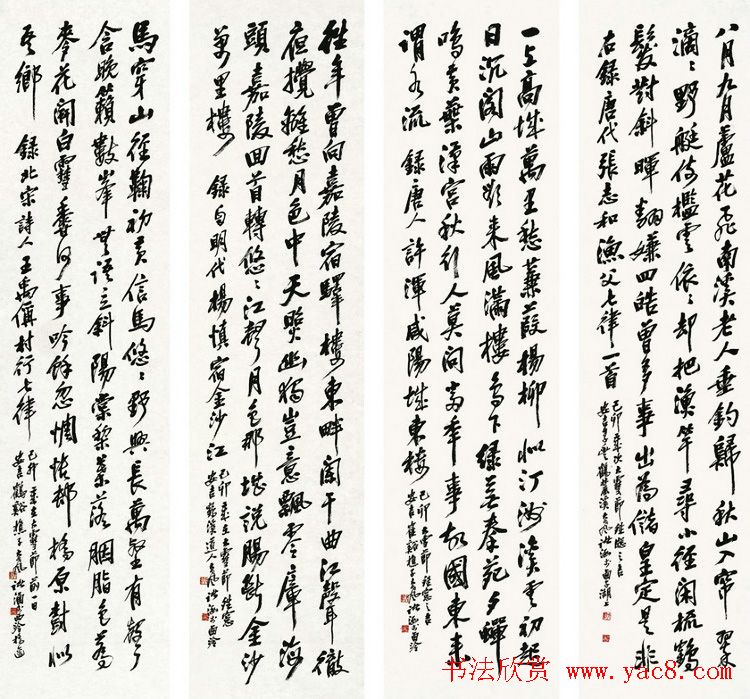 八月九月蘆花飛南溪老人垂釣歸秋山入簾翠
滴〻野艇倚檻雲依〻却把漁竿尋小徑閑梳鶴
髮對斜暉翻嫌四皓曾多事出為儲皇定是非
右錄唐代張志和漁父七律一首
己卯
一上高城萬里愁蒹葭楊柳似汀洲溪雲初起
日沉閣山雨欲來風滿樓鳥下綠蕪秦苑夕蟬
鳴黃葉漢宮秋行人莫問當年事故國東來
渭水流 錄唐人許渾咸陽城東樓
己卯
往年曾向嘉陵宿驛樓東畔闌干曲江聲徹
夜攪離愁月色中天照幽獨豈意飄零瘴海
頭嘉陵回首轉悠〻江聲月色那堪說腸斷金沙
萬里樓 錄自明代楊慎宿金沙江
己卯
馬穿山徑鞠初黃信馬悠〻野興長萬壑有聲
含晚籟數峯無語立斜陽棠梨葉落胭脂色蕎
麥花開白雪香何事吟餘忽惆悵村橋原樹似
吾鄉 錄北宋詩人王禹偁村行七律
己卯
书法欣赏 www.yac8.com